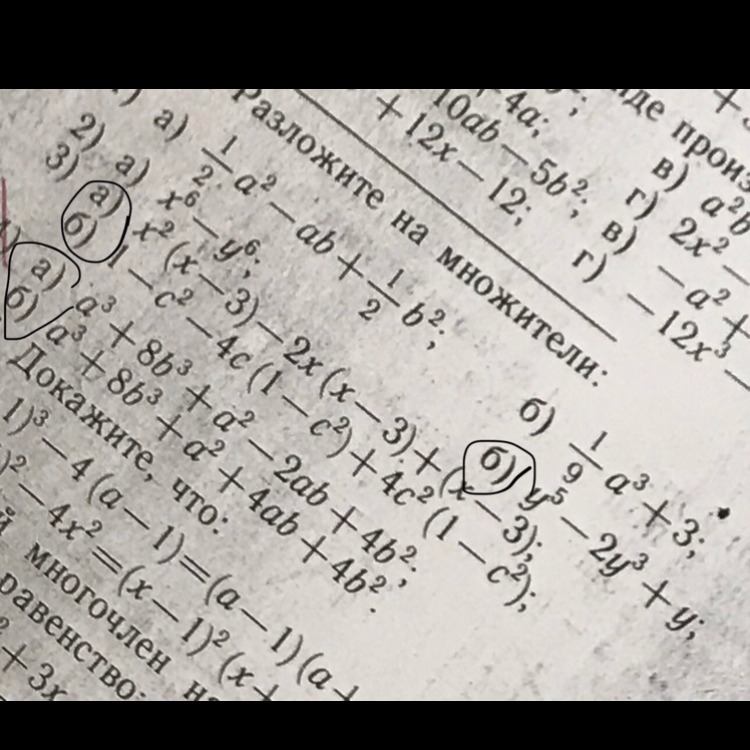 + 4a;
10ab — 5b²;
+ 12x — 12;
в) a²b
г) 2x² —
в) — a² +
г) — 12x³ —
Разложите на множители:
1) а) 1/2 a² — ab + 1/2 b²; б) 1/9 a³ + 3;
2) а) x⁶ — y⁶; б) y⁵ — 2y³ + y;
3) а) x² (x — 3) — 2x (x — 3) + (x — 3);
б) 1 — c² — 4c (1 — c²) + 4c² (1 — c²);
а) a³ + 8b³ + a² — 2ab + 4b²;
б) a³ + 8b³ + a² + 4ab + 4b².
Докажите, что:
1)³ — 4 (a — 1) = (a — 1) (a +
)² — 4x² = (x — 1)² (x +
многочлен
равенство:
+ 3x